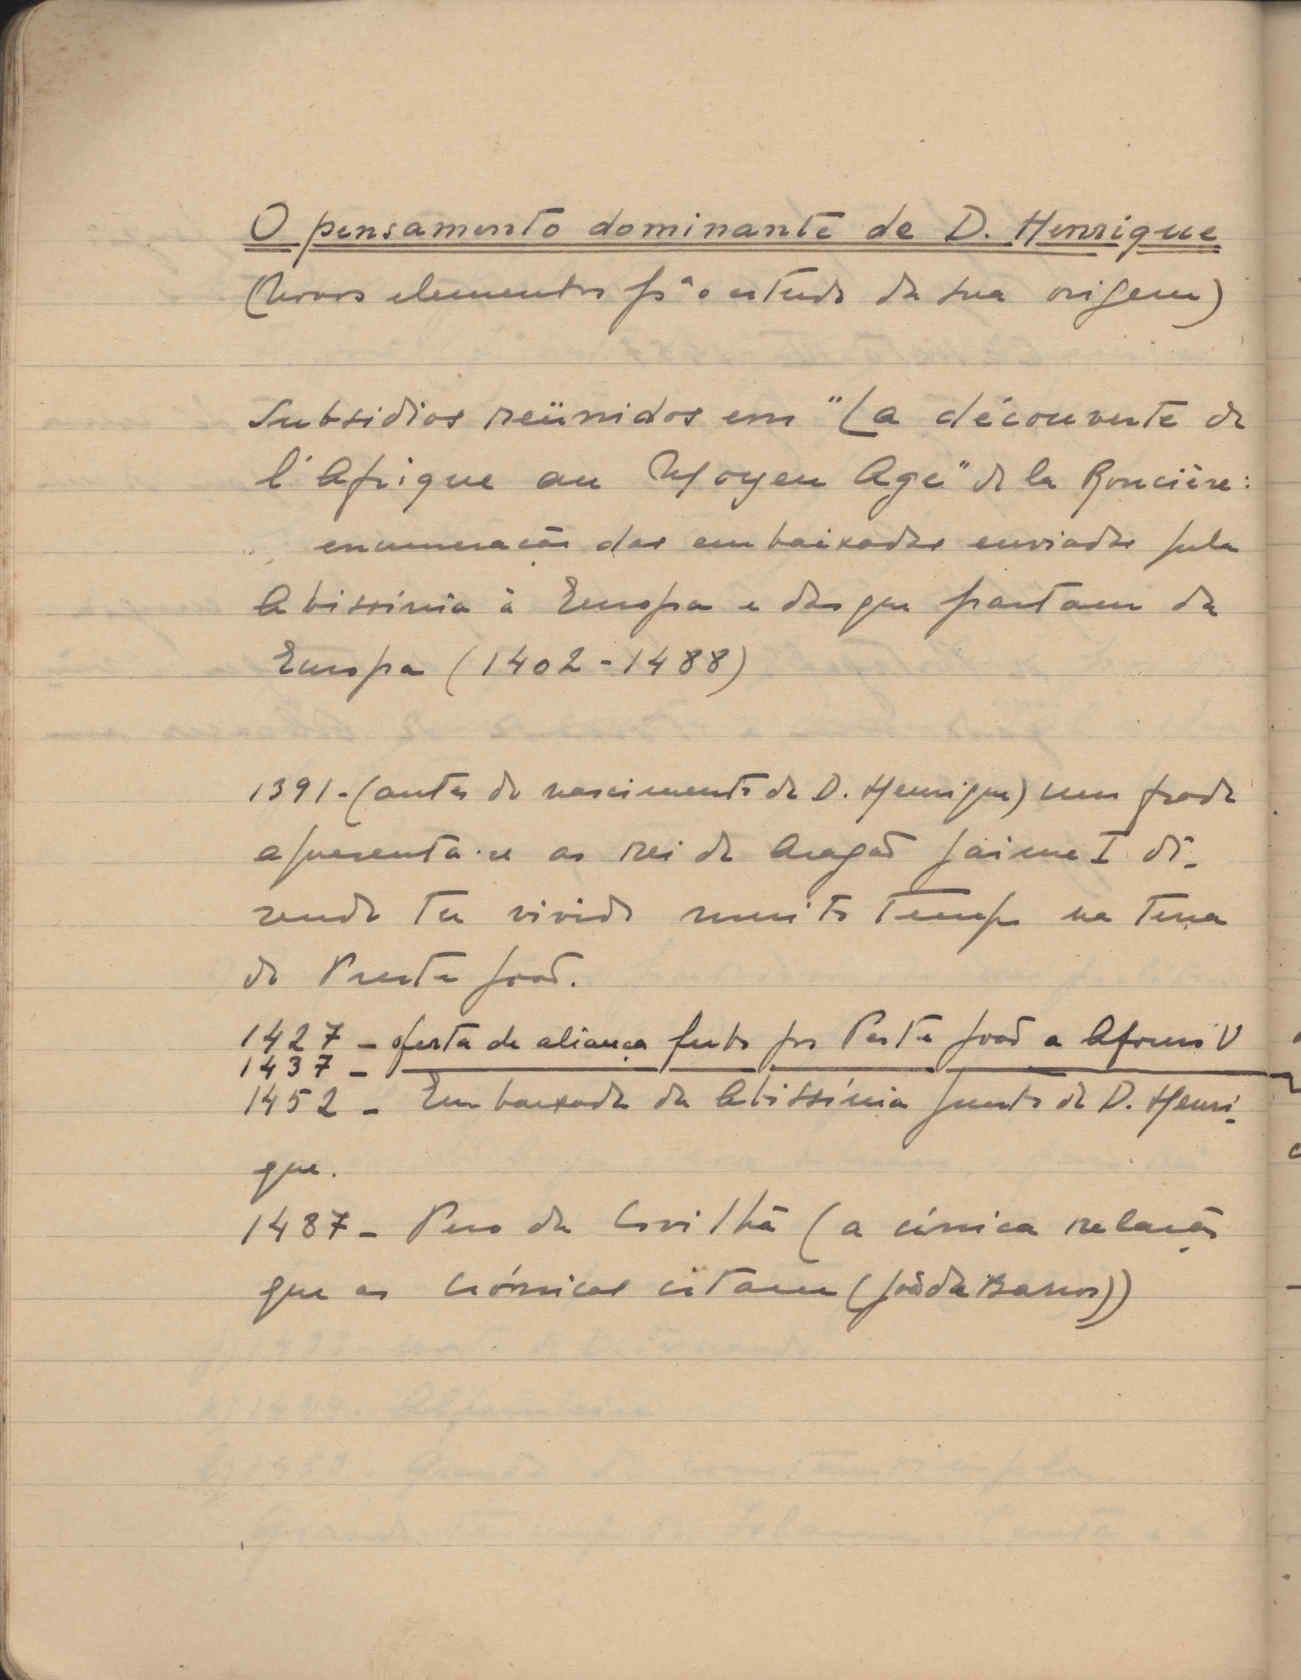 O pensamento dominante de D. Henrique
(Novos elementos pª o estudo da sua origem)
Subsidios reünidos em "La découverte de
l'Afrique au Moyen Age" de la Roncière:
enumeração das embaixadas enviadas pela
Abissínia à Europa e das que partam da
Europa (1402-1488)
1391-(antes do nascimento de D. Henrique) um frade
apresenta-se ao rei de Aragão Jaime I di-
zendo ter vivido muito tempo na terra
do Preste João.
1427 - oferta de aliança feita por Preste João a Afonso V
1437 -
1452 - Embaixada da Abissínia junto de D. Henri-
que.
1487 - Pero da Covilhã (a única relação
que as crónicas citam (João de Barros))